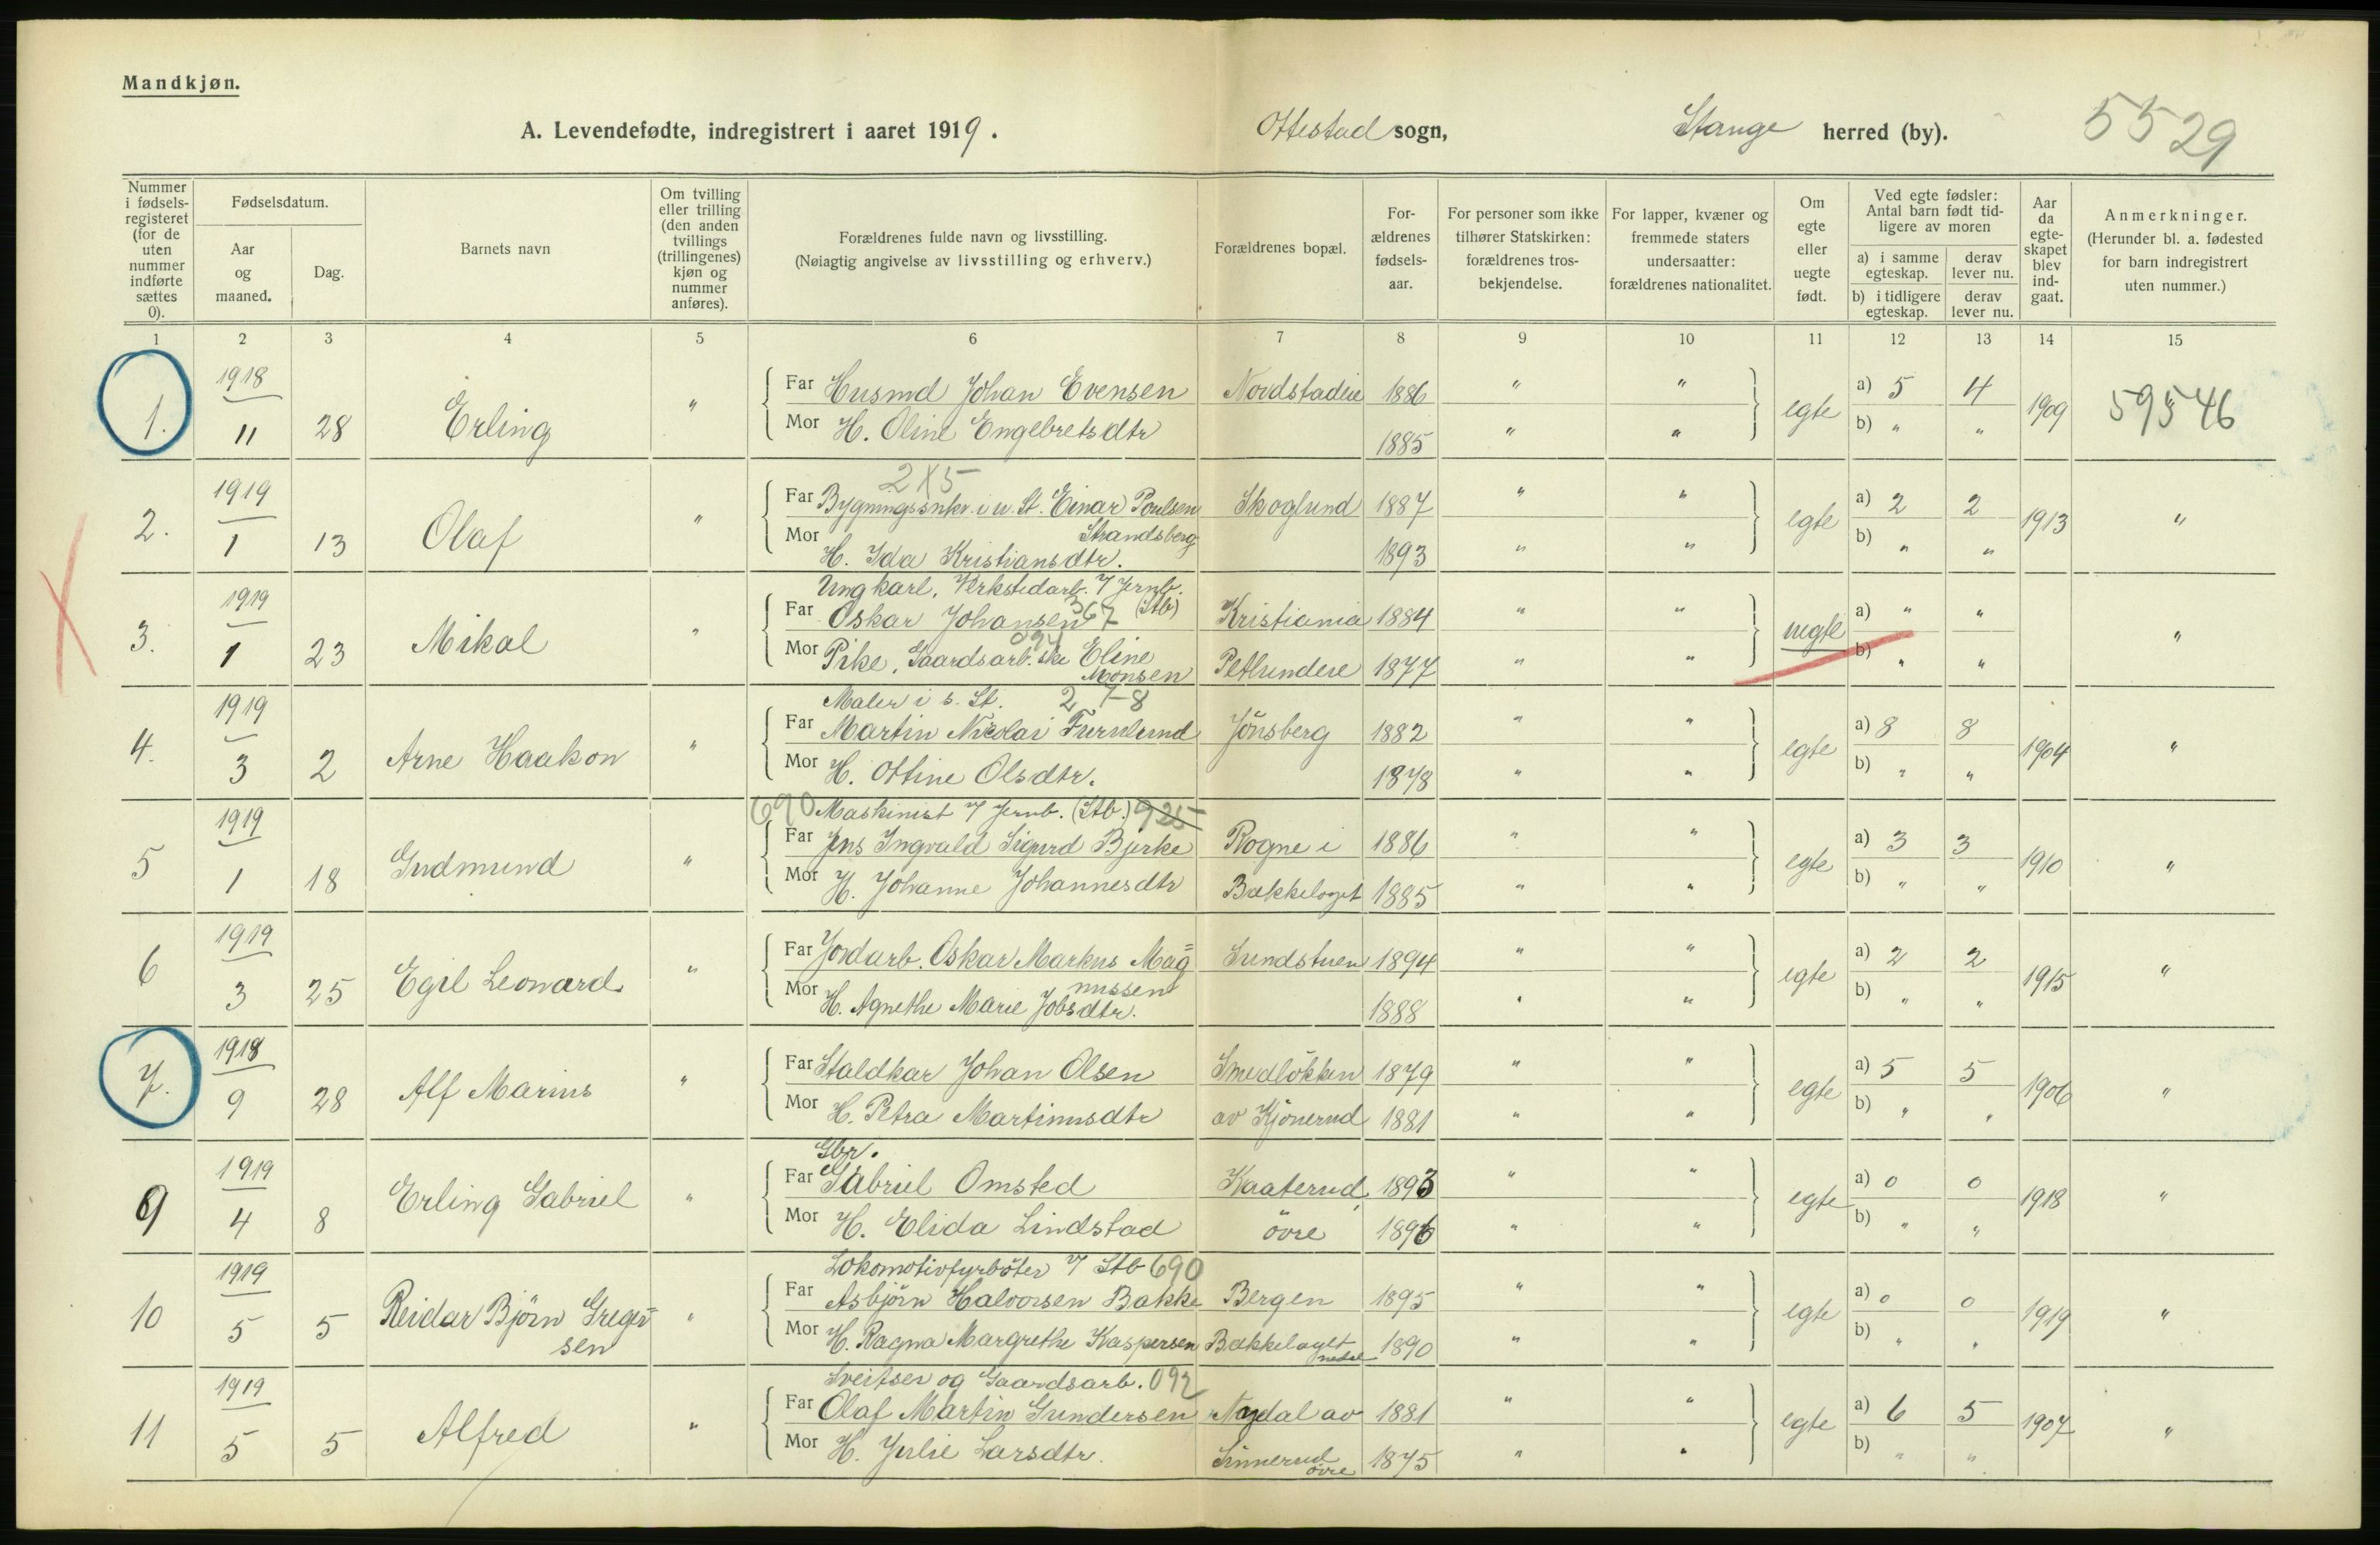 Mandkjøn.
A. Levendefødte, indregistrert i aaret 1919. Ottestad sogn, Stange herred (by). 5529
Nummer i fødsels-registeret (for de uten nummer indførte sættes 0).
Fødselsdatum.
Aar og maaned.
Dag.
Barnets navn
Om tvilling eller trilling (den anden tvillings (trillingenes) kjøn og nummer anføres).
Forældrenes fulde navn og livsstilling.
(Nøiagtig angivelse av livsstilling og erhverv.)
Forældrenes bopæl.
For-ældrenes fødsels-aar.
For personer som ikke tilhører Statskirken: forældrenes tros-bekjendelse.
For lapper, kvæner og fremmede staters undersaatter: forældrenes nationalitet.
Om egte eller uegte født.
Ved egte fødsler: Antal barn født tid-ligere av moren
a) i samme egteskap. derav lever nu.
b) i tidligere egteskap. derav lever nu.
Aar da egte-skapet blev ind-gaat.
Anmerkninger.
(Herunder bl. a. fødested for barn indregistrert uten nummer.)
1 2 3 4 5 6 7 8 9 10 11 12 13 14 15
1. 1918 11 28 Erling "
Far Husmd Johan Evensen Nordstadeie 1886 " " egte a) 5 4 1909 59546
Mor H. Oline Engebretsdtr 1885 " " b) " "
2 X 5
2. 1919 1 13 Olaf "
Far Bygningssnkr. i u. St. Einar Poulsen Strandsberg Skoglund 1887 " " egte a) 2 2 1913 "
Mor H. Ida Kristiansdtr. 1893 " " b) " "
Ungkarl, Verkstedarb. v/ Jernb.
3. 1919 1 23 Mikal "
Far Oskar Johansen 367 (Stb) Kristiania 1884 " " uegte a) " " "
Mor Pike, Gaardsarb.ske Eline Monsen Petlundeie 1877 " " b) " "
Maler i s. St. 2 7-8
4. 1919 3 2 Arne Haakon "
Far Martin Nicolai Furulund Jönsberg 1882 " " egte a) 8 8 1904 "
Mor H. Ottine Olsdtr. 1878 " " b) " "
690 Maskinist v/ Jernb. (Stb.) 925
5 1919 1 18 Gudmund "
Far Jens Ingvald Sigurd Bjerke Rogne i 1886 " " egte a) 3 3 1910 "
Mor H. Johanne Johannesdtr Bækkelaget 1885 " " b) " "
6 1919 3 25 Egil Leonard "
Far Jordarb. Oskar Markus Mag=nussen Sundstuen 1894 " " egte a) 2 2 1915 "
Mor H. Agnethe Marie Jobsdtr. 1888 " " b) " "
7. 1918 9 28 Alf Marius "
Far Staldkar Johan Olsen Smedlökken 1879 " " egte a) 5 5 1906 "
Mor H. Petra Martinusdtr av Kjönerud 1881 " " b) " "
Gbr.
9 1919 4 8 Erling Gabriel "
Far Gabriel Omsted Kaaterud, 1893 " " egte a) 0 0 1918 "
Mor H. Elida Lindstad övre 1896 " " b) " "
Lokomotivfyrböter v/ Stb 690
10 1919 5 5 Reidar Björn Greger=sen "
Far Asbjörn Halvorsen Bakke Bergen 1895 " " egte a) 0 0 1919 "
Mor H. Ragna Margrethe Kaspersen Bækkelaget nedre 1890 " " b) " "
Sveitser og Gaardsarb. 092
11 1919 5 5 Alfred "
Far Olaf Martin Gundersen Nydal av 1881 " " egte a) 6 5 1907 "
Mor H. Julie Larsdtr. Sinnerud övre 1875 " " b) " "